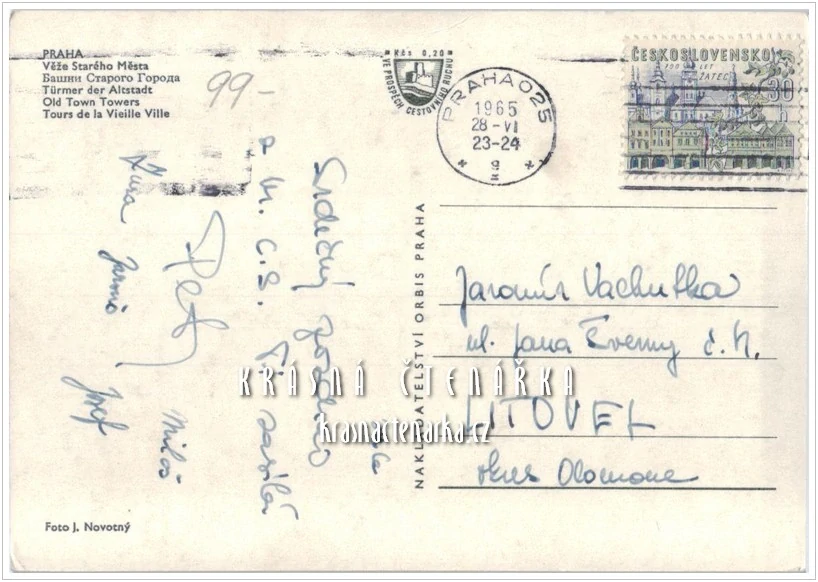 PRAHA
Věže Starého Města
Башни Старого Города
Türmer der Altstadt
Old Town Towers
Tours de la Vieille Ville
99-
Kčs 0,20
VE PROSPĚCH CESTOVNÍHO RUCHU
PRAHA 025
1965
28-VI
23-24
g
ČESKOSLOVENSKO
LET
ŽATEC
30
h
Srdečný pozdrav
z M. C. S. Ti zasílá
Petr
Miloš
Jarmil
Josef
NAKLADATELSTVÍ ORBIS PRAHA
Jaromír Vachutka
ul. Jana Švermy č. 11.
LITOVEL
okres Olomouc
KRÁSNÁ ČTENÁŘKA
krasnactenarka.cz
Foto J. Novotný